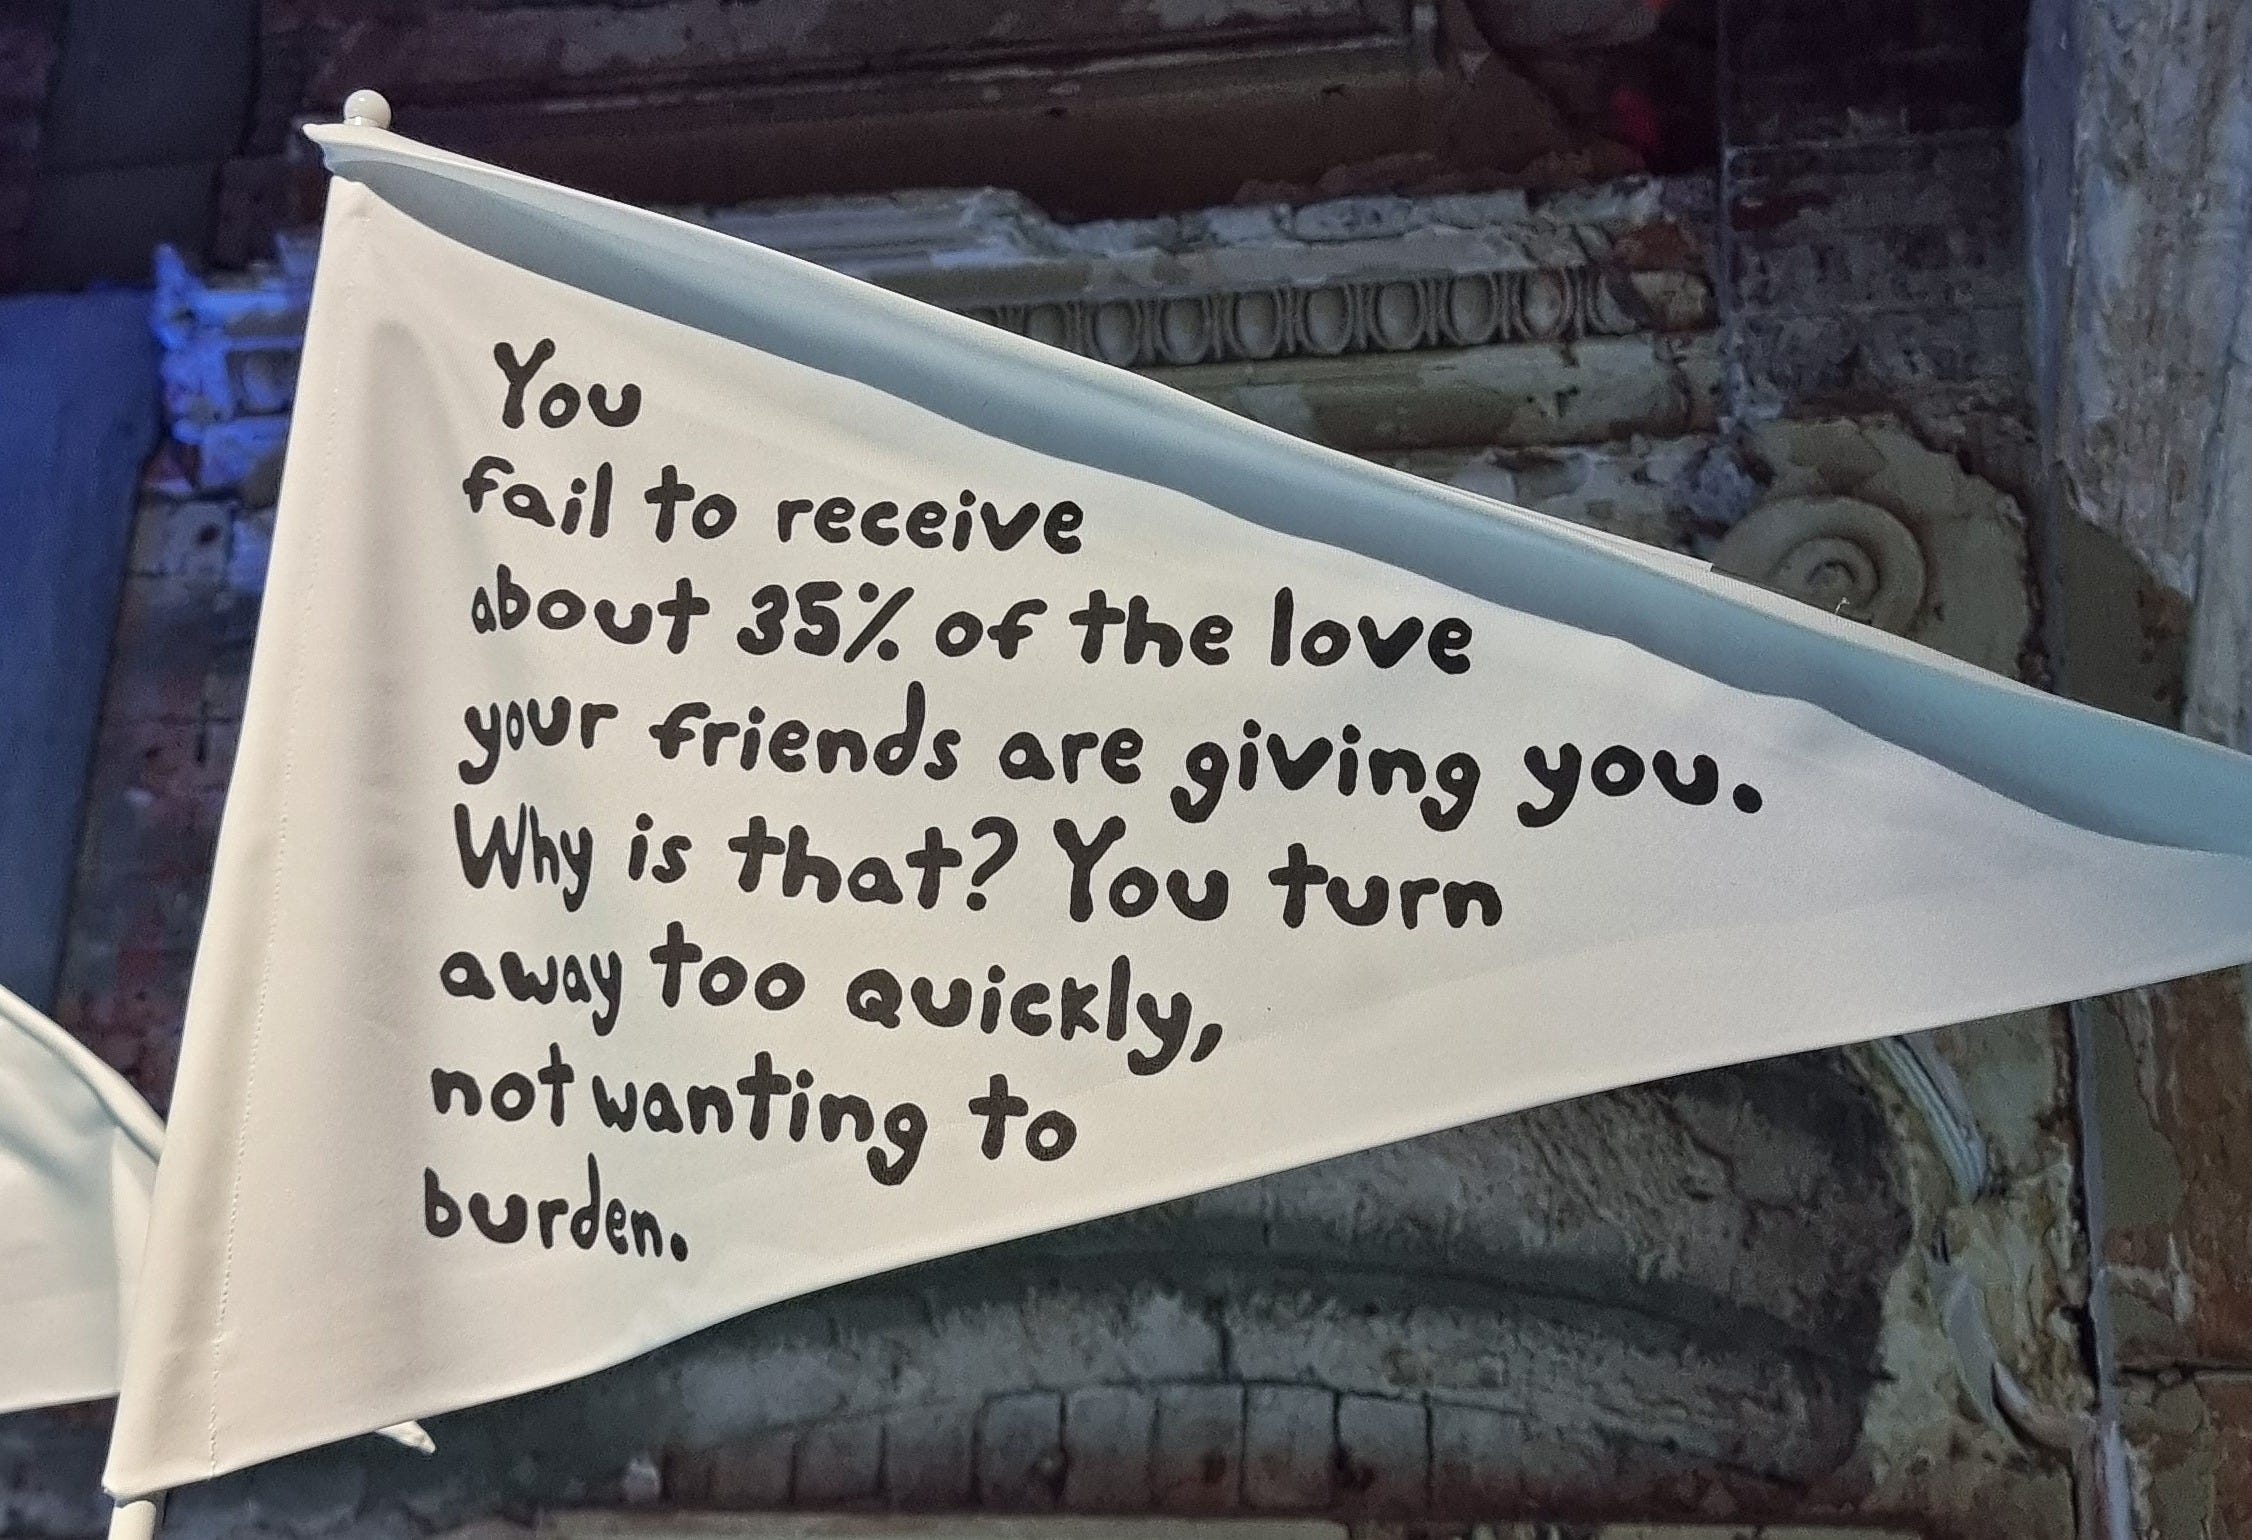 You
fail to receive
about 35% of the love
your friends are giving you.
Why is that? You turn
away too quickly,
not wanting to
burden.